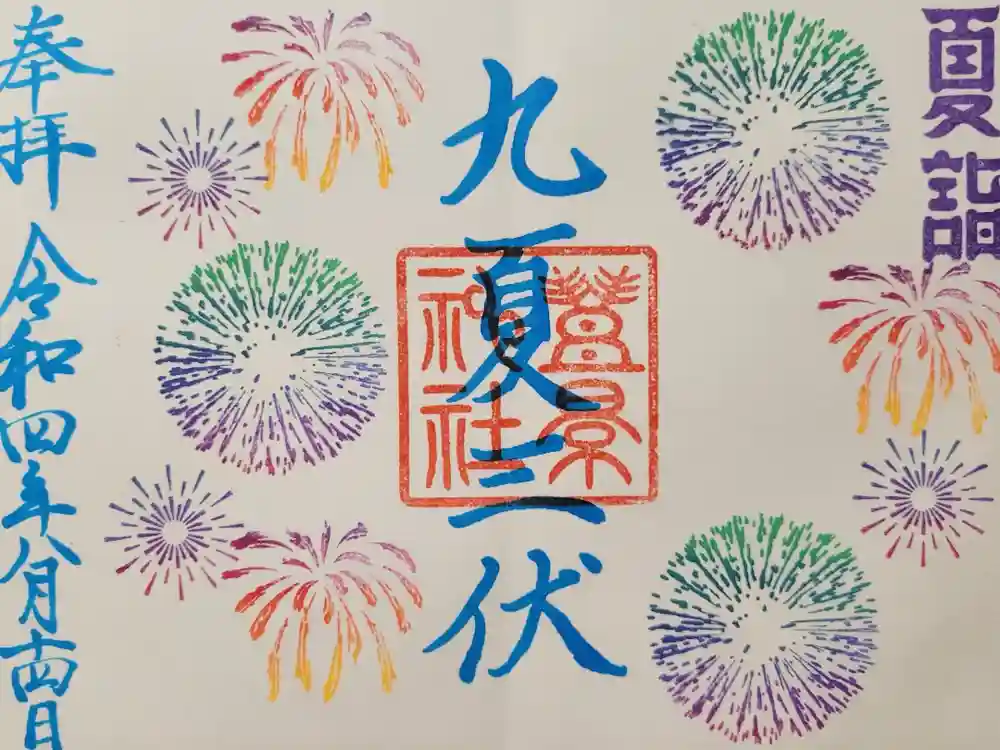 夏詣
九夏三伏
豊景
神社
奉拝 令和四年八月十四日